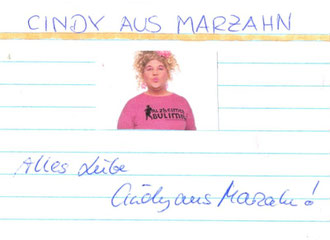 CINDY AUS MARZAHN
Alzheimer
BULIMIE
Alles Liebe
Cindy aus Marzahn!